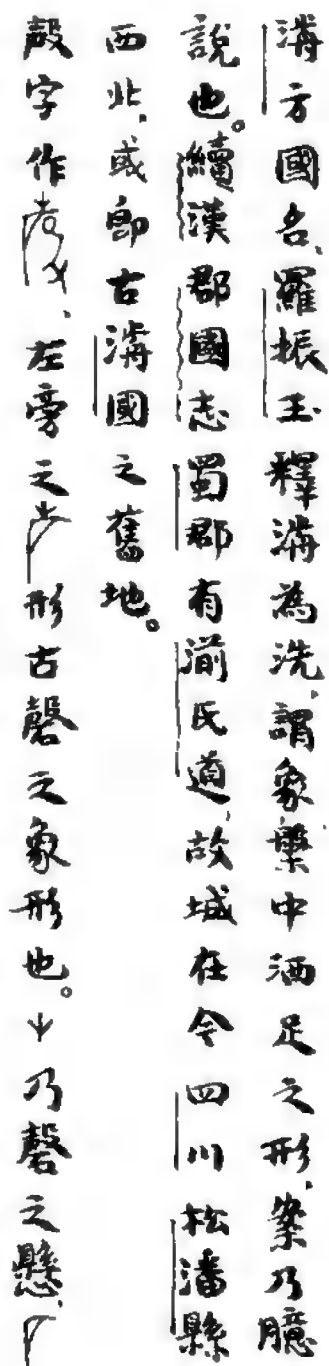 湔方國名、羅振玉釋湔為洗、謂象槃中洒足之形、案乃臆
說也。續漢郡國志蜀郡有湔氏道、故城在今四川松潘縣
西北、或即古湔國之舊地。
殸字作、左旁之形古磬之象形也。乃磬之懸、